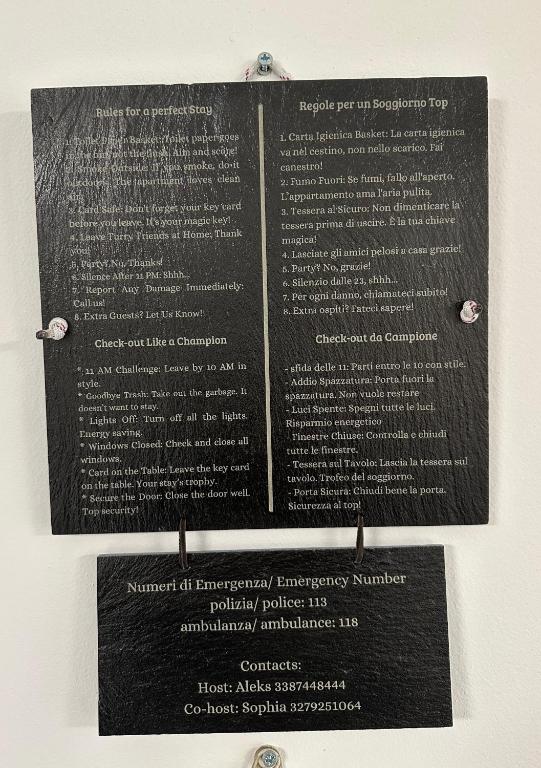 Rules for a perfect Stay
1. Toilet Paper Basket: Toilet paper goes
in the bin, not the flush. Aim and score!
2. Smoke Outside: If you smoke, do it
outdoors. The apartment loves clean
air.
3. Card Safe: Don't forget your key card
before you leave. It's your magic key!
4. Leave Furry Friends at Home, Thank
you!
5. Party? No, Thanks!
6. Silence After 11 PM: Shhh...
7. Report Any Damage Immediately:
Call us!
8. Extra Guests? Let Us Know!
Check-out Like a Champion
* 11 AM Challenge: Leave by 10 AM in
style.
* Goodbye Trash: Take out the garbage. It
doesn't want to stay.
* Lights Off: Turn off all the lights.
Energy saving.
* Windows Closed: Check and close all
windows.
* Card on the Table: Leave the key card
on the table. Your stay's trophy.
* Secure the Door: Close the door well.
Top security!
Regole per un Soggiorno Top
1. Carta Igienica Basket: La carta igienica
va nel cestino, non nello scarico. Fai
canestro!
2. Fumo Fuori: Se fumi, fallo all'aperto.
L'appartamento ama l'aria pulita.
3. Tessera al Sicuro: Non dimenticare la
tessera prima di uscire. È la tua chiave
magica!
4. Lasciate gli amici pelosi a casa grazie!
5. Party? No, grazie!
6. Silenzio dalle 23, shhh...
7. Per ogni danno, chiamateci subito!
8. Extra ospiti? Fateci sapere!
Check-out da Campione
- sfida delle 11: Parti entro le 10 con stile.
- Addio Spazzatura: Porta fuori la
spazzatura. Non vuole restare
- Luci Spente: Spegni tutte le luci.
Risparmio energetico
- Finestre Chiuse: Controlla e chiudi
tutte le finestre.
- Tessera sul Tavolo: Lascia la tessera sul
tavolo. Trofeo del soggiorno.
- Porta Sicura: Chiudi bene la porta.
Sicurezza al top!
Numeri di Emergenza/ Emergency Number
polizia/ police: 113
ambulanza/ ambulance: 118
Contacts:
Host: Aleks 3387448444
Co-host: Sophia 3279251064